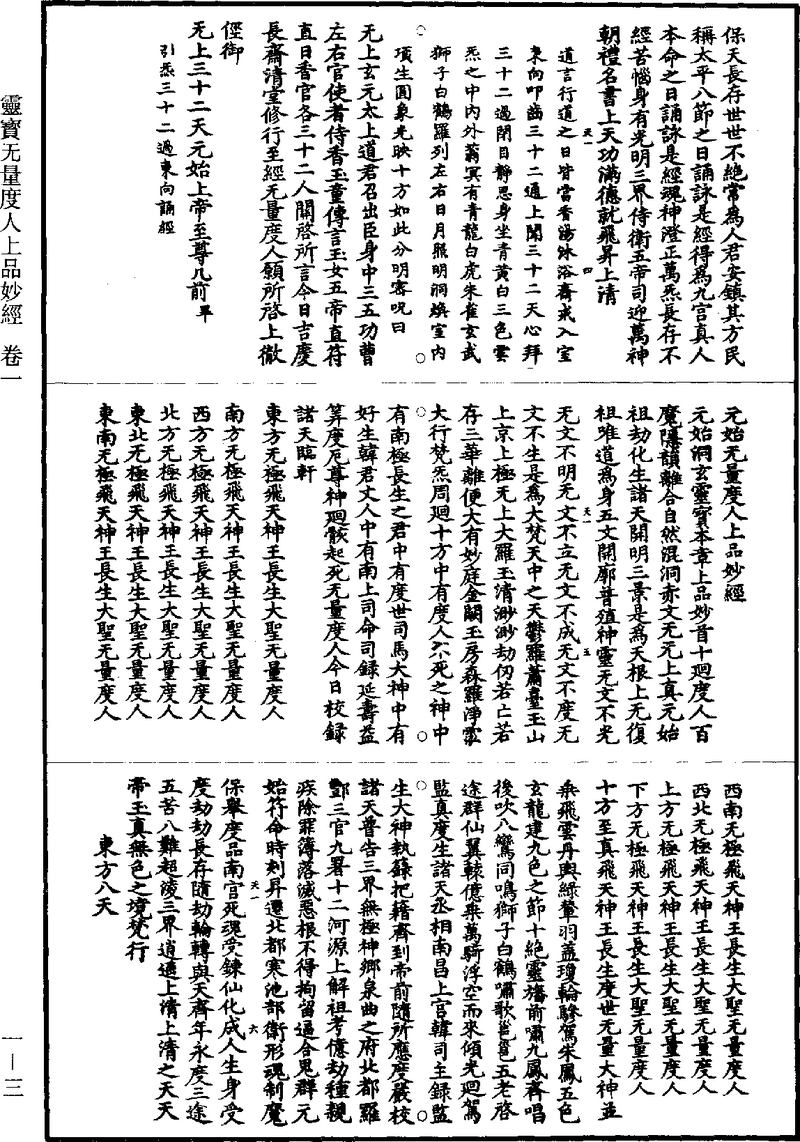 保天長存世世不絕常為人君安鎮其方民
稱太平八節之日誦詠是經得為九宮真人
本命之日誦詠是經魂神澄正萬炁長存不
經苦惱身有光明三界侍衛五帝司迎萬神
朝禮名書上天功滿德就飛昇上清
道言行道之日皆當香湯沐浴齋戒入室
東向叩齒三十二通上聞三十二天心拜
三十二過閉目靜思身坐青黃白三色雲
炁之中內外蓊冥有青龍白虎朱雀玄武
獅子白鶴羅列左右日月照明洞煥室內
項生圓象光映十方如此分明密呪曰
无上玄元太上道君召出臣身中三五功曹
左右官使者侍香玉童傳言玉女五帝直符
直日香官各三十二人關啓所言今日吉慶
長齋清堂修行至經无量度人願所啓上徹
徑御
无上三十二天元始上帝至尊几前 畢
引炁三十二過東向誦經
元始无量度人上品妙經
元始洞玄靈寶本章上品妙首十廻度人百
魔隱韻離合自然混洞赤文无无上真元始
祖劫化生諸天開明三景是為天根上无復
祖唯道為身五文開廓普殖神靈无文不光
无文不明无文不立无文不成无文不度无
文不生是為大梵天中之天鬱羅蕭臺玉山
上京上極无上大羅玉清渺渺劫仞若亡若
存三華離便大有妙庭金闕玉房森羅淨泓
大行梵炁周廻十方中有度人不死之神中
有南極長生之君中有度世司馬大神中有
好生韓君丈人中有南上司命司錄延壽益
筭度厄尊神廻骸起死无量度人今日校錄
諸天臨軒
東方无極飛天神王長生大聖无量度人
南方无極飛天神王長生大聖无量度人
西方无極飛天神王長生大聖无量度人
北方无極飛天神王長生大聖无量度人
東北无極飛天神王長生大聖无量度人
東南无極飛天神王長生大聖无量度人
西南无極飛天神王長生大聖无量度人
西北无極飛天神王長生大聖无量度人
上方无極飛天神王長生大聖无量度人
下方无極飛天神王長生大聖无量度人
十方至真飛天神王長生度世无量大神並
乘飛雲丹輿綠輦羽蓋瓊輪驂駕朱鳳五色
玄龍建九色之節十絕靈旛前嘯九鳳齊唱
後吹八鸞同鳴獅子白鶴嘯歌邕邕五老啓
途群仙翼轅億乘萬騎浮空而來傾光廻駕
監真度生諸天丞相南昌上宮韓司主錄監
生大神執籙把籍齋到帝前隨所應度嚴校
諸天普告三界無極神鄉泉曲之府北都羅
酆三官九署十二河源上解祖考億劫種親
疾除罪簿落滅惡根不得拘留逼合鬼群元
始符命時刻昇遷北都寒池部衛形魂制魔
保舉度品南宮死魂受鍊仙化成人生身受
度劫劫長存隨劫輪轉與天齊年永度三途
五苦八難超凌三界逍遙上清上清之天天
帝玉真無色之境梵行
東方八天
靈寶无量度人上品妙經 卷一
一—三